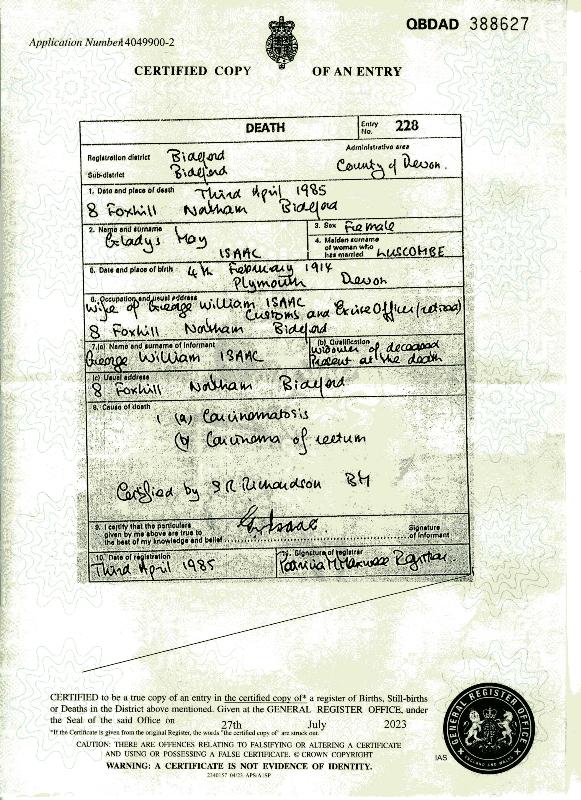 QBDAD 388627
Application Number 14049900-2
CERTIFIED COPY OF AN ENTRY
DEATH Entry No. 228
Registration district Bideford Administrative area
Sub-district Bideford County of Devon.
1. Date and place of death Third April 1985
8 Foxhill Northam Bideford
2. Name and surname 3. Sex Female
Gladys May ISAAC
4. Maiden surname of woman who has married LUSCOMBE
5. Date and place of birth 4th February 1914
Plymouth Devon
6. Occupation and usual address
Wife of George William ISAAC
Customs and Excise Officer (retired)
8 Foxhill Northam Bideford
7.(a) Name and surname of informant (b) Qualification
George William ISAAC Widower of deceased
Present at the death
(c) Usual address
8 Foxhill Northam Bideford
8. Cause of death
1 (a) Carcinomatosis
(b) Carcinoma of rectum
Certified by S R Richardson BM
9. I certify that the particulars
given by me above are true to
the best of my knowledge and belief GW Isaac Signature of informant
10. Date of registration 11. Signature of registrar
Third April 1985 Patricia M Registrar
CERTIFIED to be a true copy of an entry in the certified copy of* a register of Births, Still-births
or Deaths in the District above mentioned. Given at the GENERAL REGISTER OFFICE, under
the Seal of the said Office on 27th July 2023
*If the Certificate is given from the original Register, the words "the certified copy of" are struck out.
CAUTION: THERE ARE OFFENCES RELATING TO FALSIFYING OR ALTERING A CERTIFICATE
AND USING OR POSSESSING A FALSE CERTIFICATE. © CROWN COPYRIGHT
WARNING: A CERTIFICATE IS NOT EVIDENCE OF IDENTITY.
2240157 04/23 APS/A1SP
IAS
GENERAL REGISTER OFFICE
ENGLAND AND WALES